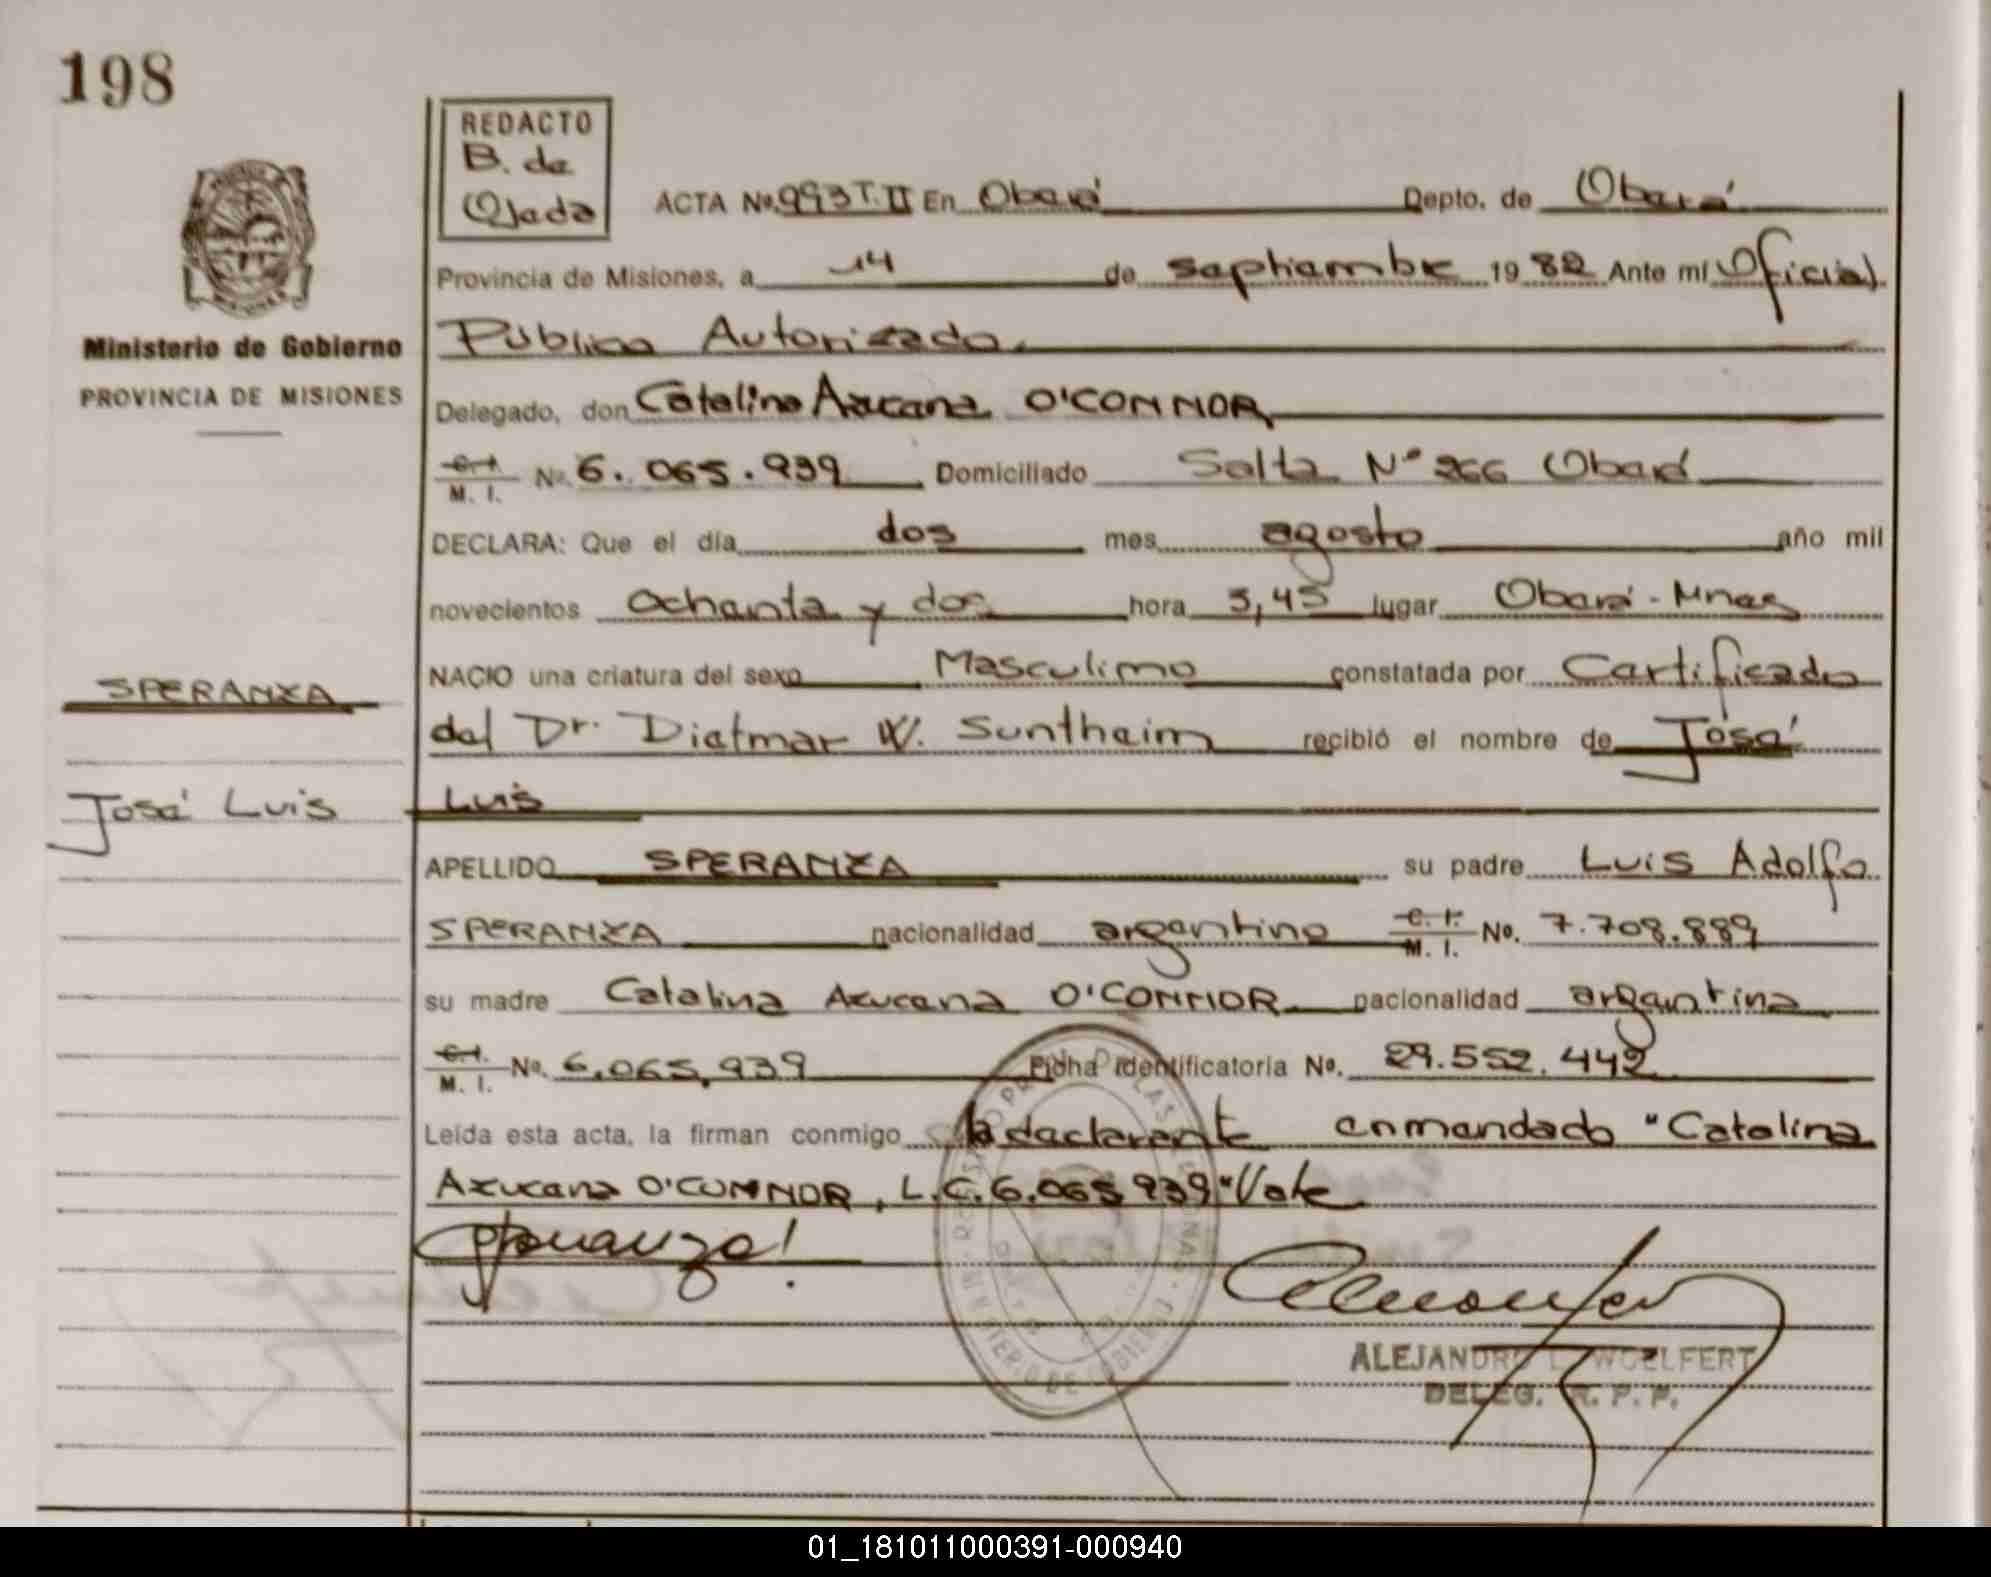 198
REDACTO
B. de
Ojeda
ACTA No. 993 T. II En Oberá Depto. de Oberá
Provincia de Misiones, a 14 de septiembre 19 82 Ante mí Oficial
Público Autorizado
Ministerio de Gobierno
PROVINCIA DE MISIONES
Delegado, don Catalina Azucena O'CONNOR
C.I. M. I. No. 6.065.939 Domiciliado Salta N° 266 Oberá
DECLARA: Que el día dos mes agosto año mil
novecientos ochenta y dos hora 3,45 lugar Oberá - Mnes
NACIO una criatura del sexo Masculino constatada por Certificado
SPERANZA
del Dr. Dietmar W. Suntheim recibió el nombre de José
José Luis
Luis
APELLIDO SPERANZA su padre Luis Adolfo
SPERANZA nacionalidad argentino C. I. M. I. No. 7.708.889
su madre Catalina Azucena O'CONNOR nacionalidad argentina
C.I. M. I. No. 6.065.939 Ficha identificatoria No. 29.552.442
Leída esta acta, la firman conmigo la declarante enmendado "Catalina
Azucena O'CONNOR, L.C. 6.065.939" Vale
ALEJANDRO L. WOELFERT
DELEG. R. P. P.
01_181011000391-000940